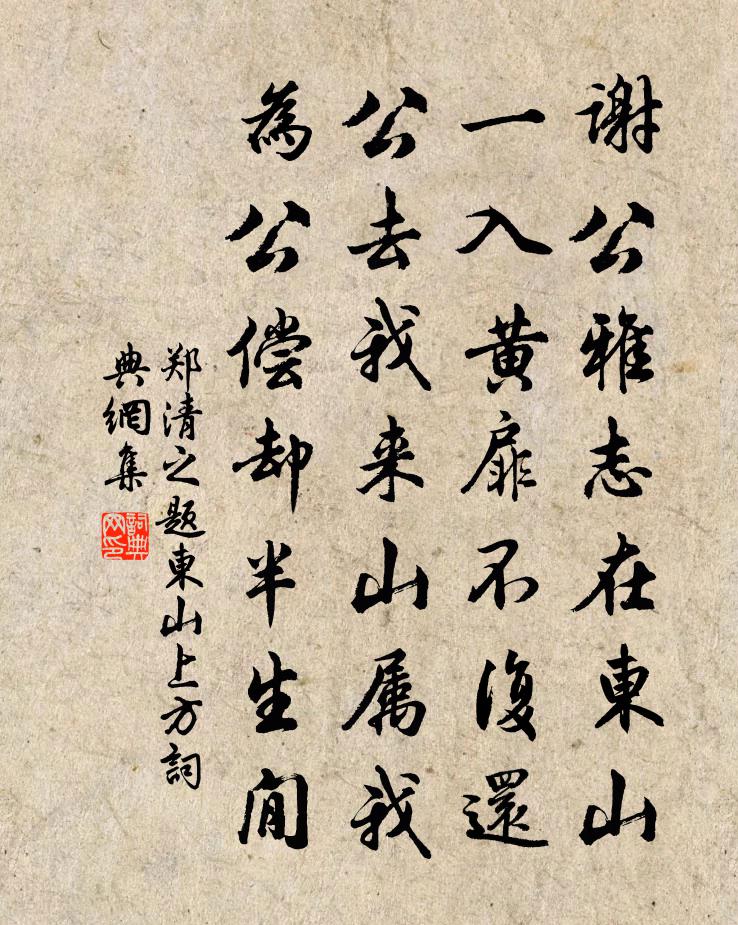 謝公雅志在東山
一入黄扉不復還
公去我来山属我
為公偿却半生閒
郑清之题東山上方詞
典網集
詞典
网印